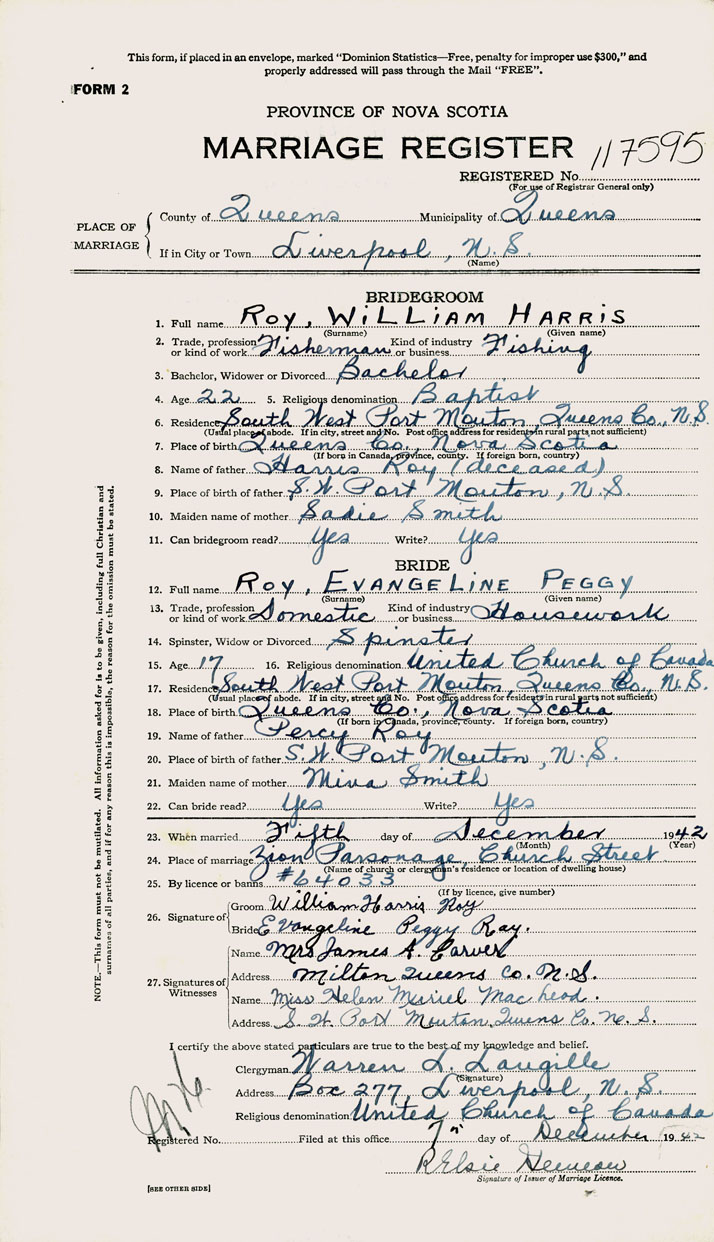 This form, if placed in an envelope, marked "Dominion Statistics—Free, penalty for improper use $300," and
properly addressed will pass through the Mail "FREE".
FORM 2
PROVINCE OF NOVA SCOTIA
MARRIAGE REGISTER
117595
REGISTERED No.
(For use of Registrar General only)
PLACE OF MARRIAGE
County of Queens Municipality of Queens
If in City or Town Liverpool, N.S.
(Name)
BRIDEGROOM
1. Full name ROY, WILLIAM HARRIS
(Surname) (Given name)
2. Trade, profession or kind of work Fisherman Kind of industry or business Fishing
3. Bachelor, Widower or Divorced Bachelor
4. Age 22 5. Religious denomination Baptist
6. Residence South West Port Mouton, Queens Co., N.S.
(Usual place of abode. If in city, street and No. Post office address for residents in rural parts not sufficient)
7. Place of birth Queens Co., Nova Scotia
(If born in Canada, province, county. If foreign born, country)
8. Name of father Harris Roy (deceased)
9. Place of birth of father S.W. Port Mouton, N.S.
10. Maiden name of mother Sadie Smith
11. Can bridegroom read? Yes Write? Yes
BRIDE
12. Full name ROY, EVANGELINE PEGGY
(Surname) (Given name)
13. Trade, profession or kind of work Domestic Kind of industry or business Housework
14. Spinster, Widow or Divorced Spinster
15. Age 17 16. Religious denomination United Church of Canada
17. Residence South West Port Mouton, Queens Co., N.S.
(Usual place of abode. If in city, street and No. Post office address for residents in rural parts not sufficient)
18. Place of birth Queens Co., Nova Scotia
(If born in Canada, province, county. If foreign born, country)
19. Name of father Percy Roy
20. Place of birth of father S.W. Port Mouton, N.S.
21. Maiden name of mother Miva Smith
22. Can bride read? Yes Write? Yes
23. When married Fifth day of December 1942
(Month) (Year)
24. Place of marriage Zion Parsonage, Church Street
(Name of church or clergyman's residence or location of dwelling house)
25. By licence or banns #64033
(If by licence, give number)
26. Signature of
Groom William Harris Roy
Bride Evangeline Peggy Roy.
27. Signatures of Witnesses
Name Mrs James A. Carver
Address Milton Queens Co. N.S.
Name Miss Helen Muriel Mac
Address S. W. Port Mouton, Queens Co. N. S.
I certify the above stated particulars are true to the best of my knowledge and belief.
Clergyman Warren L. Langille
(Signature)
Address Box 277, Liverpool, N.S.
Religious denomination United Church of Canada
Registered No. Filed at this office 7th day of December 1942
R Elsie
Signature of Issuer of Marriage Licence.
[SEE OTHER SIDE]
NOTE.—This form must not be mutilated. All information asked for is to be given, including full Christian and
surnames of all parties, and if for any reason this is impossible, the reason for the omission must be stated.